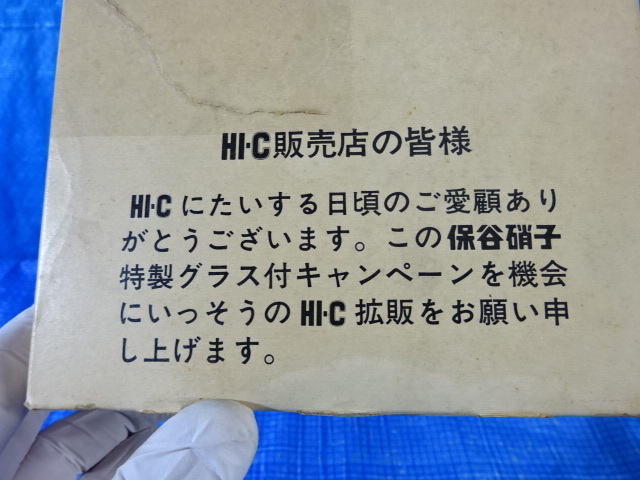 HI-C販売店の皆様
HI-C にたいする日頃のご愛顧あり
がとうございます。この保谷硝子
特製グラス付キャンペーンを機会
にいっそうの HI-C 拡販をお願い申
し上げます。